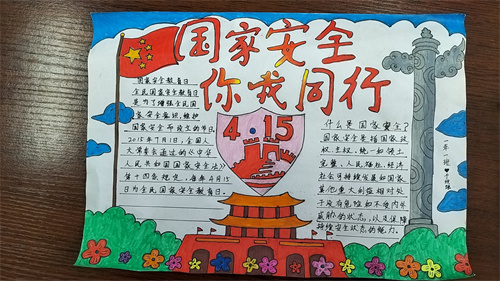 国家安全
你我同行
国家安全教育日
全民国家安全教育日
是为了增强全民国
家安全意识,维护
国家安全而设立的节日。
2015年7月1日,全国人
大常委会通过的《中华
人民共和国国家安全法》
第十四条规定,每年4月15
日为全民国家安全教育日。
4.15
什么是国家安全?
国家安全是指国家政
权、主权、统一和领土
完整、人民福祉、经济
社会可持续发展和国家
其他重大利益相对处
于没有危险和不受内外
威胁的状态,以及保障
持续安全状态的能力。
一年一班